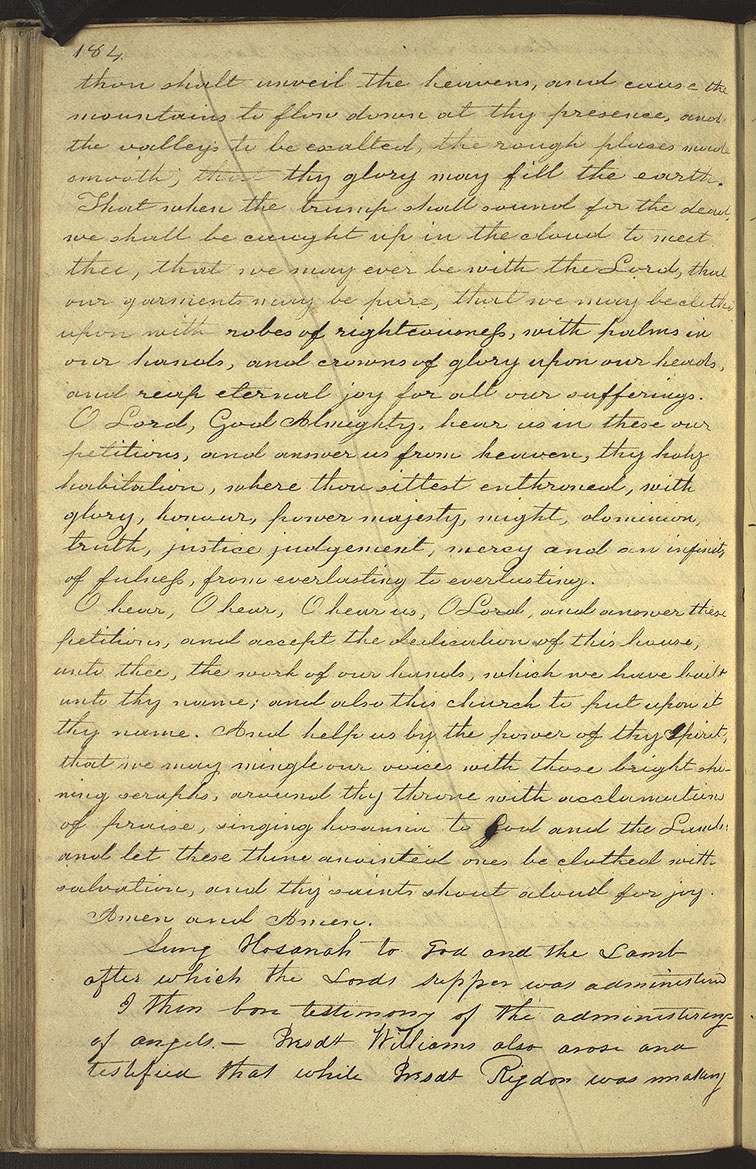 184
thou shalt unveil the heavens, and cause the
mountains to flow down at thy presence, and
the valleys to be exalted, the rough places made
smooth; that thy glory may fill the earth.
That when the trump shall sound for the dead,
we shall be caught up in the cloud to meet
thee, that we may ever be with the Lord, that
our garments may be pure, that we may be clothed
upon with robes of righteousness, with palms in
our hands, and crowns of glory upon our heads,
and reap eternal joy for all our sufferings.
O Lord, God Almighty, hear us in these our
petitions, and answer us from heaven, thy holy
habitation, where thou sittest enthroned, with
glory, honour, power majesty, might, dominion,
truth, justice judgement, mercy and an infinity
of fulness, from everlasting to everlasting.
O hear, O hear, O hear us, O Lord, and answer these
petitions, and accept the dedication of this house,
unto thee, the work of our hands, which we have built
unto thy name; and also this church to put upon it
thy name. And help us by the power of thy Spirit,
that we may mingle our voices with those bright shi-
ning seraphs, around thy throne with acclamations
of praise, singing hosanna to God and the Lamb:
and let these thine anointed ones be clothed with
salvation, and thy saints shout aloud for joy.
Amen and Amen.
Sung Hosanah to God and the Lamb
after which the Lords supper was administered
I then bore testimony of the administering
of angels.— Presdt Williams also arose and
testified that while Presdt Rigdon was making